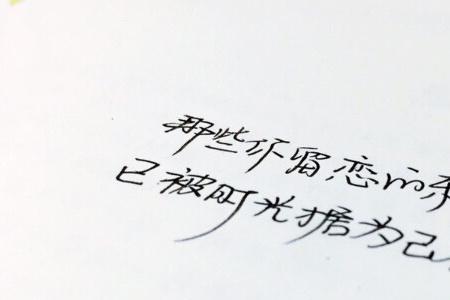 那些你留恋的
已被时光据为己